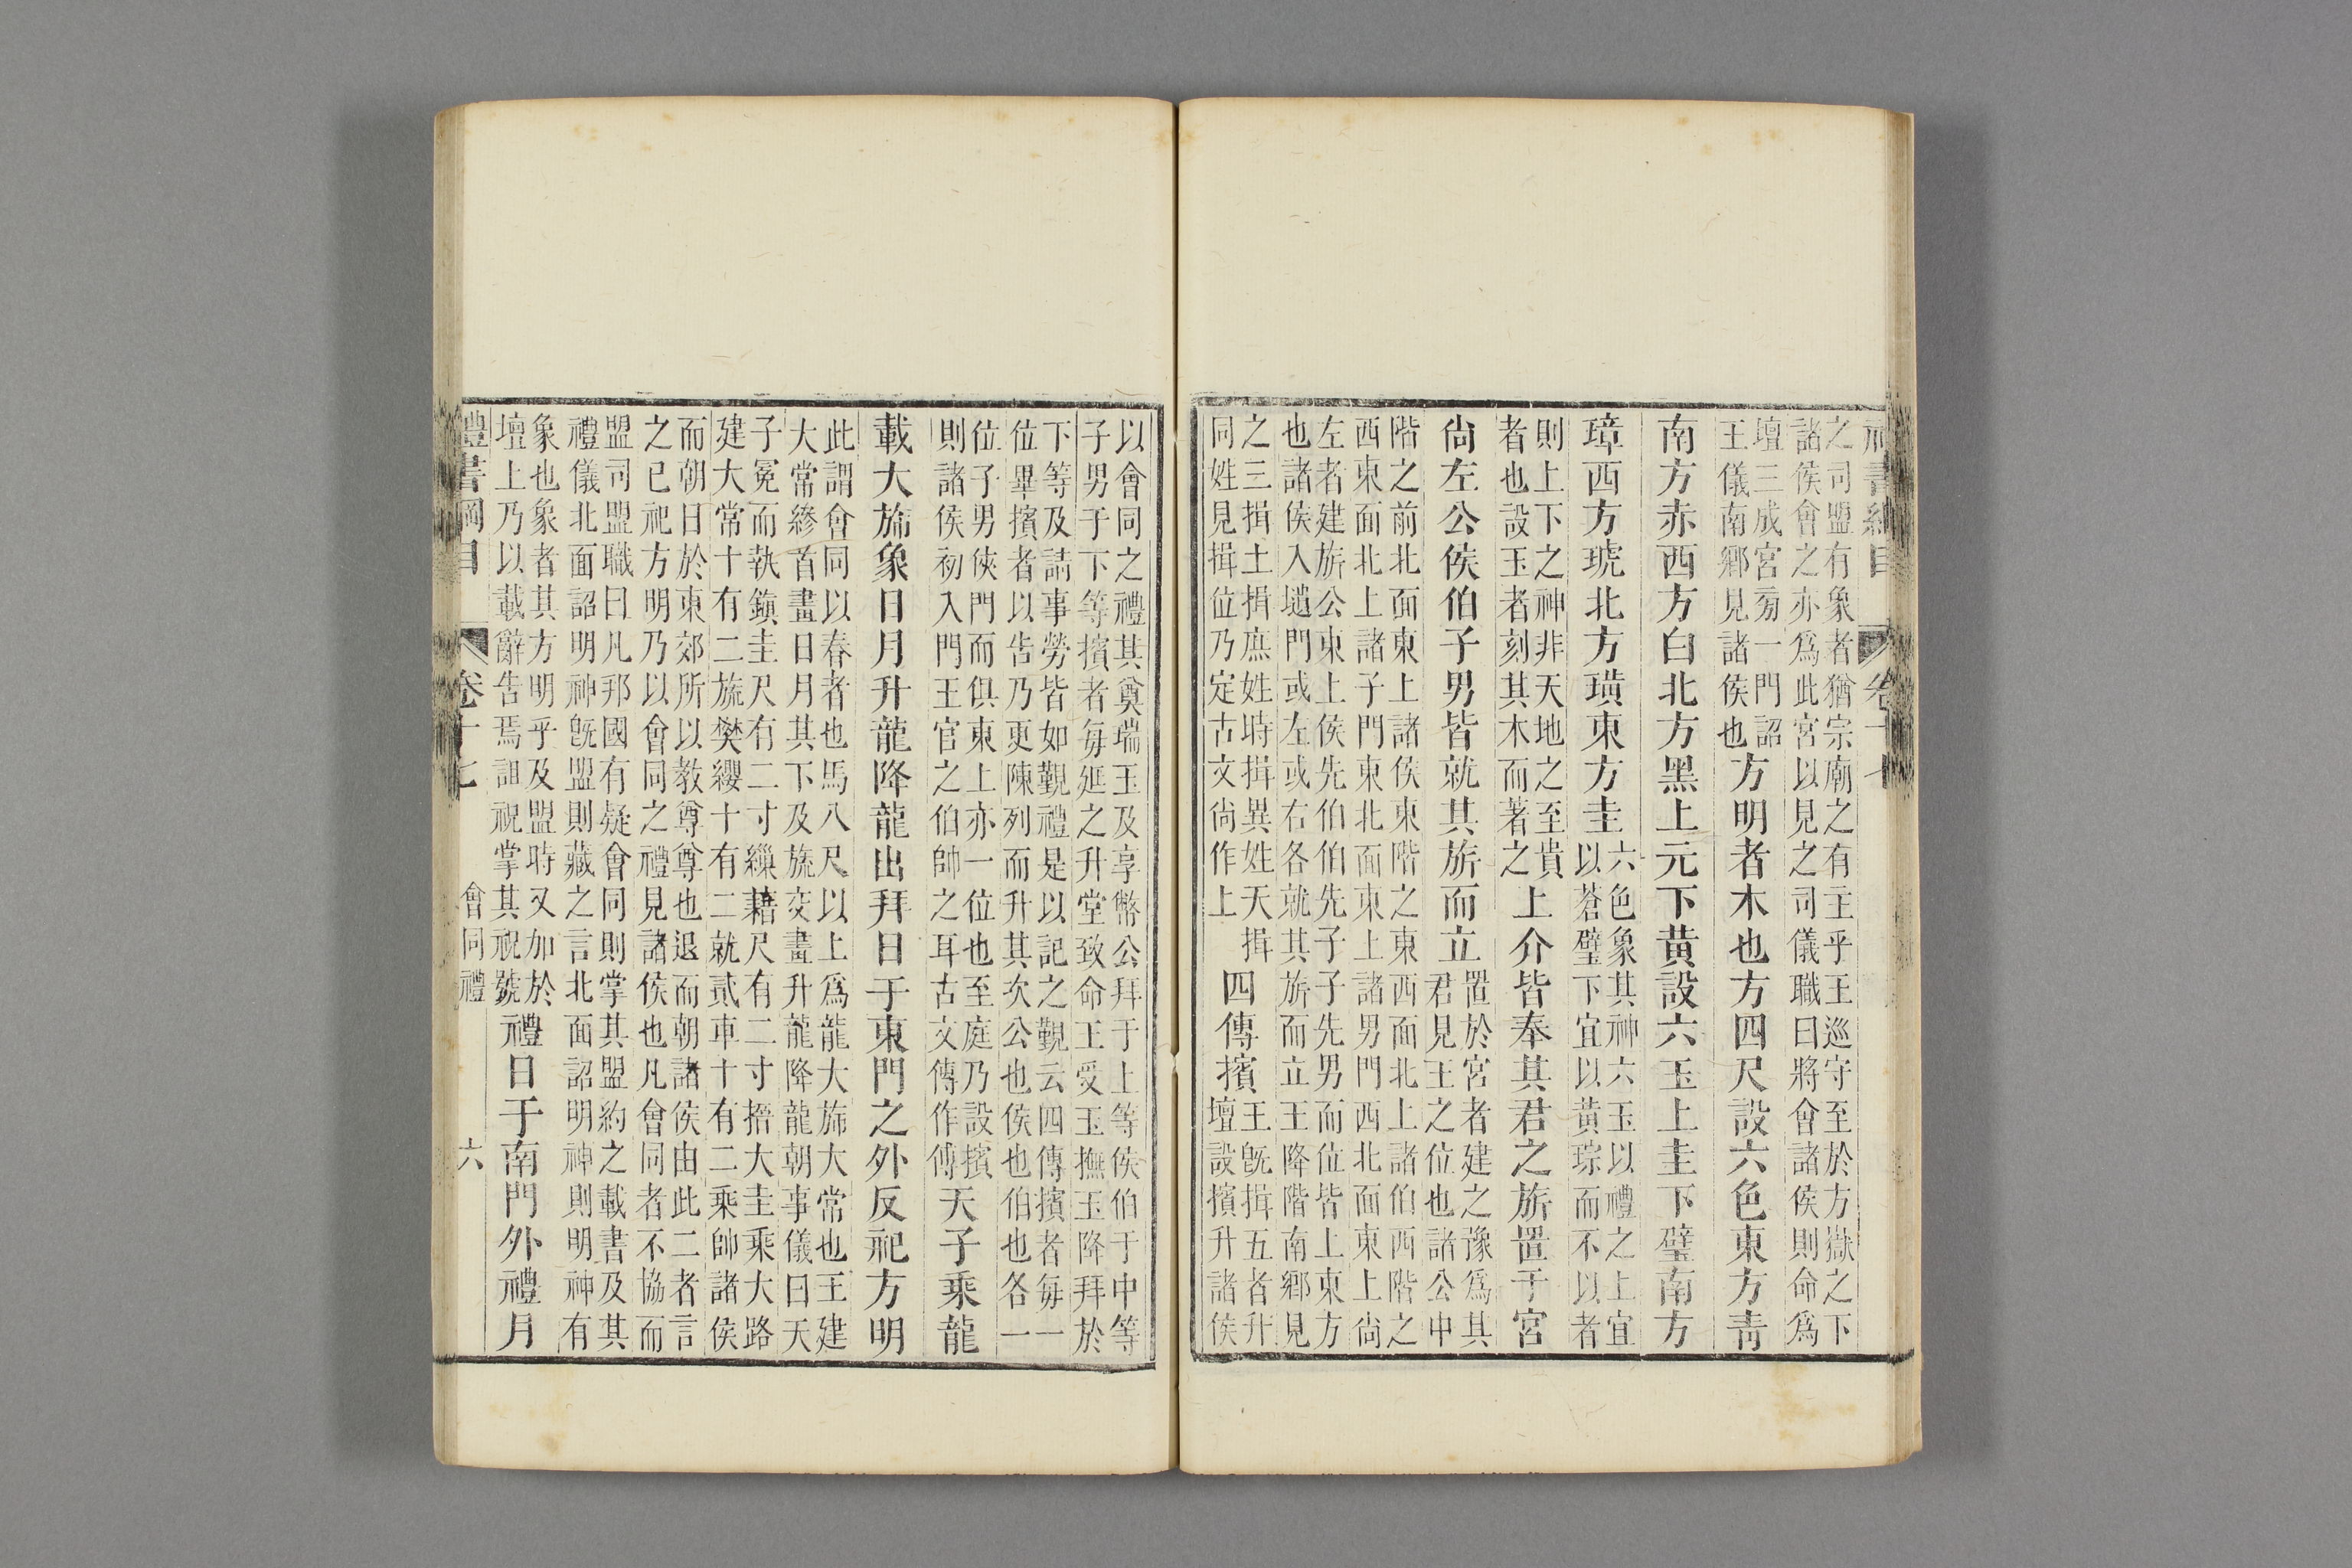 禮書綱目 卷十七
之司盟有象者猶宗廟之有主乎王巡守至於方嶽之下
諸侯會之亦爲此宮以見之司儀職曰將會諸侯則命爲
壇三成宮㫄一門詔
王儀南鄉見諸侯也
方明者木也方四尺設六色東方青
南方赤西方白北方黑上元下黃設六玉上圭下璧南方
璋西方琥北方璜東方圭
六色象其神六玉以禮之上宜
以蒼璧下宜以黃琮而不以者
則上下之神非天地之至貴
者也設玉者刻其木而著之
上介皆奉其君之旂置于宮
尙左公侯伯子男皆就其旂而立
置於宮者建之豫爲其
君見王之位也諸公中
階之前北面東上諸侯東階之東西面北上諸伯西階之
西東面北上諸子門東北面東上諸男門西北面東上尙
左者建旂公東上侯先伯伯先子子先男而位皆上東方
也諸侯入壝門或左或右各就其旂而立王降階南鄉見
之三揖土揖庶姓時揖異姓天揖
同姓見揖位乃定古文尙作上
四傳擯
王旣揖五者升
壇設擯升諸侯
以會同之禮其奠瑞玉及享幣公拜于上等侯伯于中等
子男于下等擯者每延之升堂致命王受玉撫玉降拜於
下等及請事勞皆如覲禮是以記之覲云四傳擯者每一
位畢擯者以告乃更陳列而升其次公也侯也伯也各一
位子男俠門而俱東上亦一位也至庭乃設擯
則諸侯初入門王官之伯帥之耳古文傳作傅
天子乘龍
載大旆象日月升龍降龍出拜日于東門之外反祀方明
此謂會同以春者也馬八尺以上爲龍大旆大常也王建
大常縿首畫日月其下及旒交畫升龍降龍朝事儀曰天
子冕而執鎮圭尺有二寸繅藉尺有二寸搢大圭乘大路
建大常十有二旒樊纓十有二就貳車十有二乘帥諸侯
而朝日於東郊所以教尊尊也退而朝諸侯由此二者言
之已祀方明乃以會同之禮見諸侯也凡會同者不協而
盟司盟職曰凡邦國有疑會同則掌其盟約之載書及其
禮儀北面詔明神旣盟則藏之言北面詔明神則明神有
象也象者其方明乎及盟時又加於
壇上乃以載辭告焉詛祝掌其祝號
禮日于南門外禮月
禮書綱目 卷十七 會同禮 六